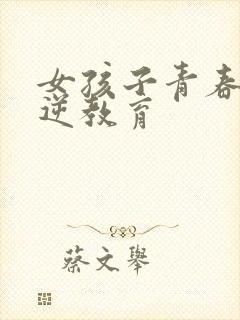 女孩子青春
逆教育
蔡文举